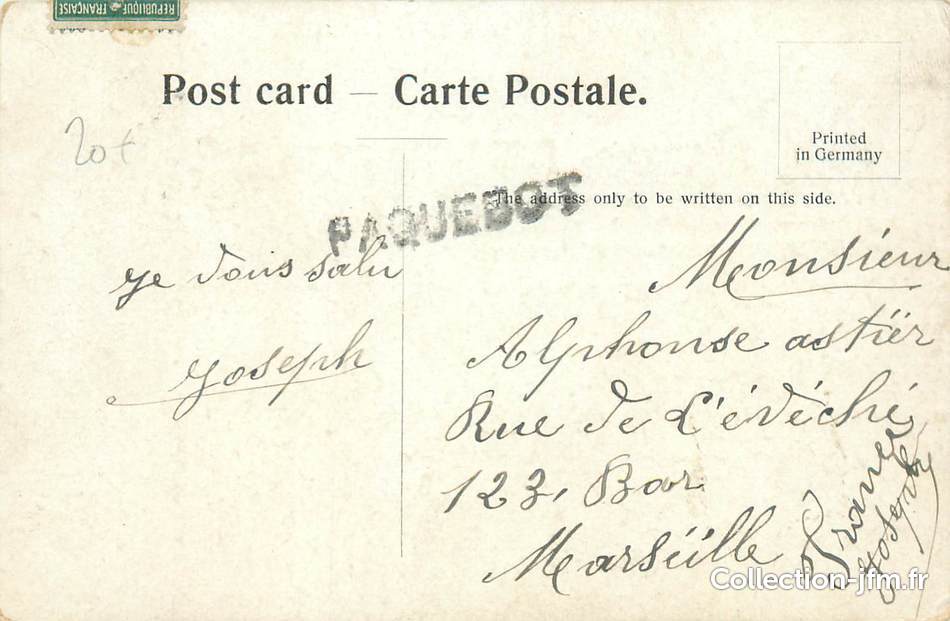 REPUBLIQUE FRANÇAISE
Post card — Carte Postale.
Printed
in Germany
20f
The address only to be written on this side.
PAQUEBOT
Je vous salu
Joseph
Monsieur
Alphonse astier
Rue de L'évéché
123, Bar
Marseille
France
Joseph
Collection-jfm.fr